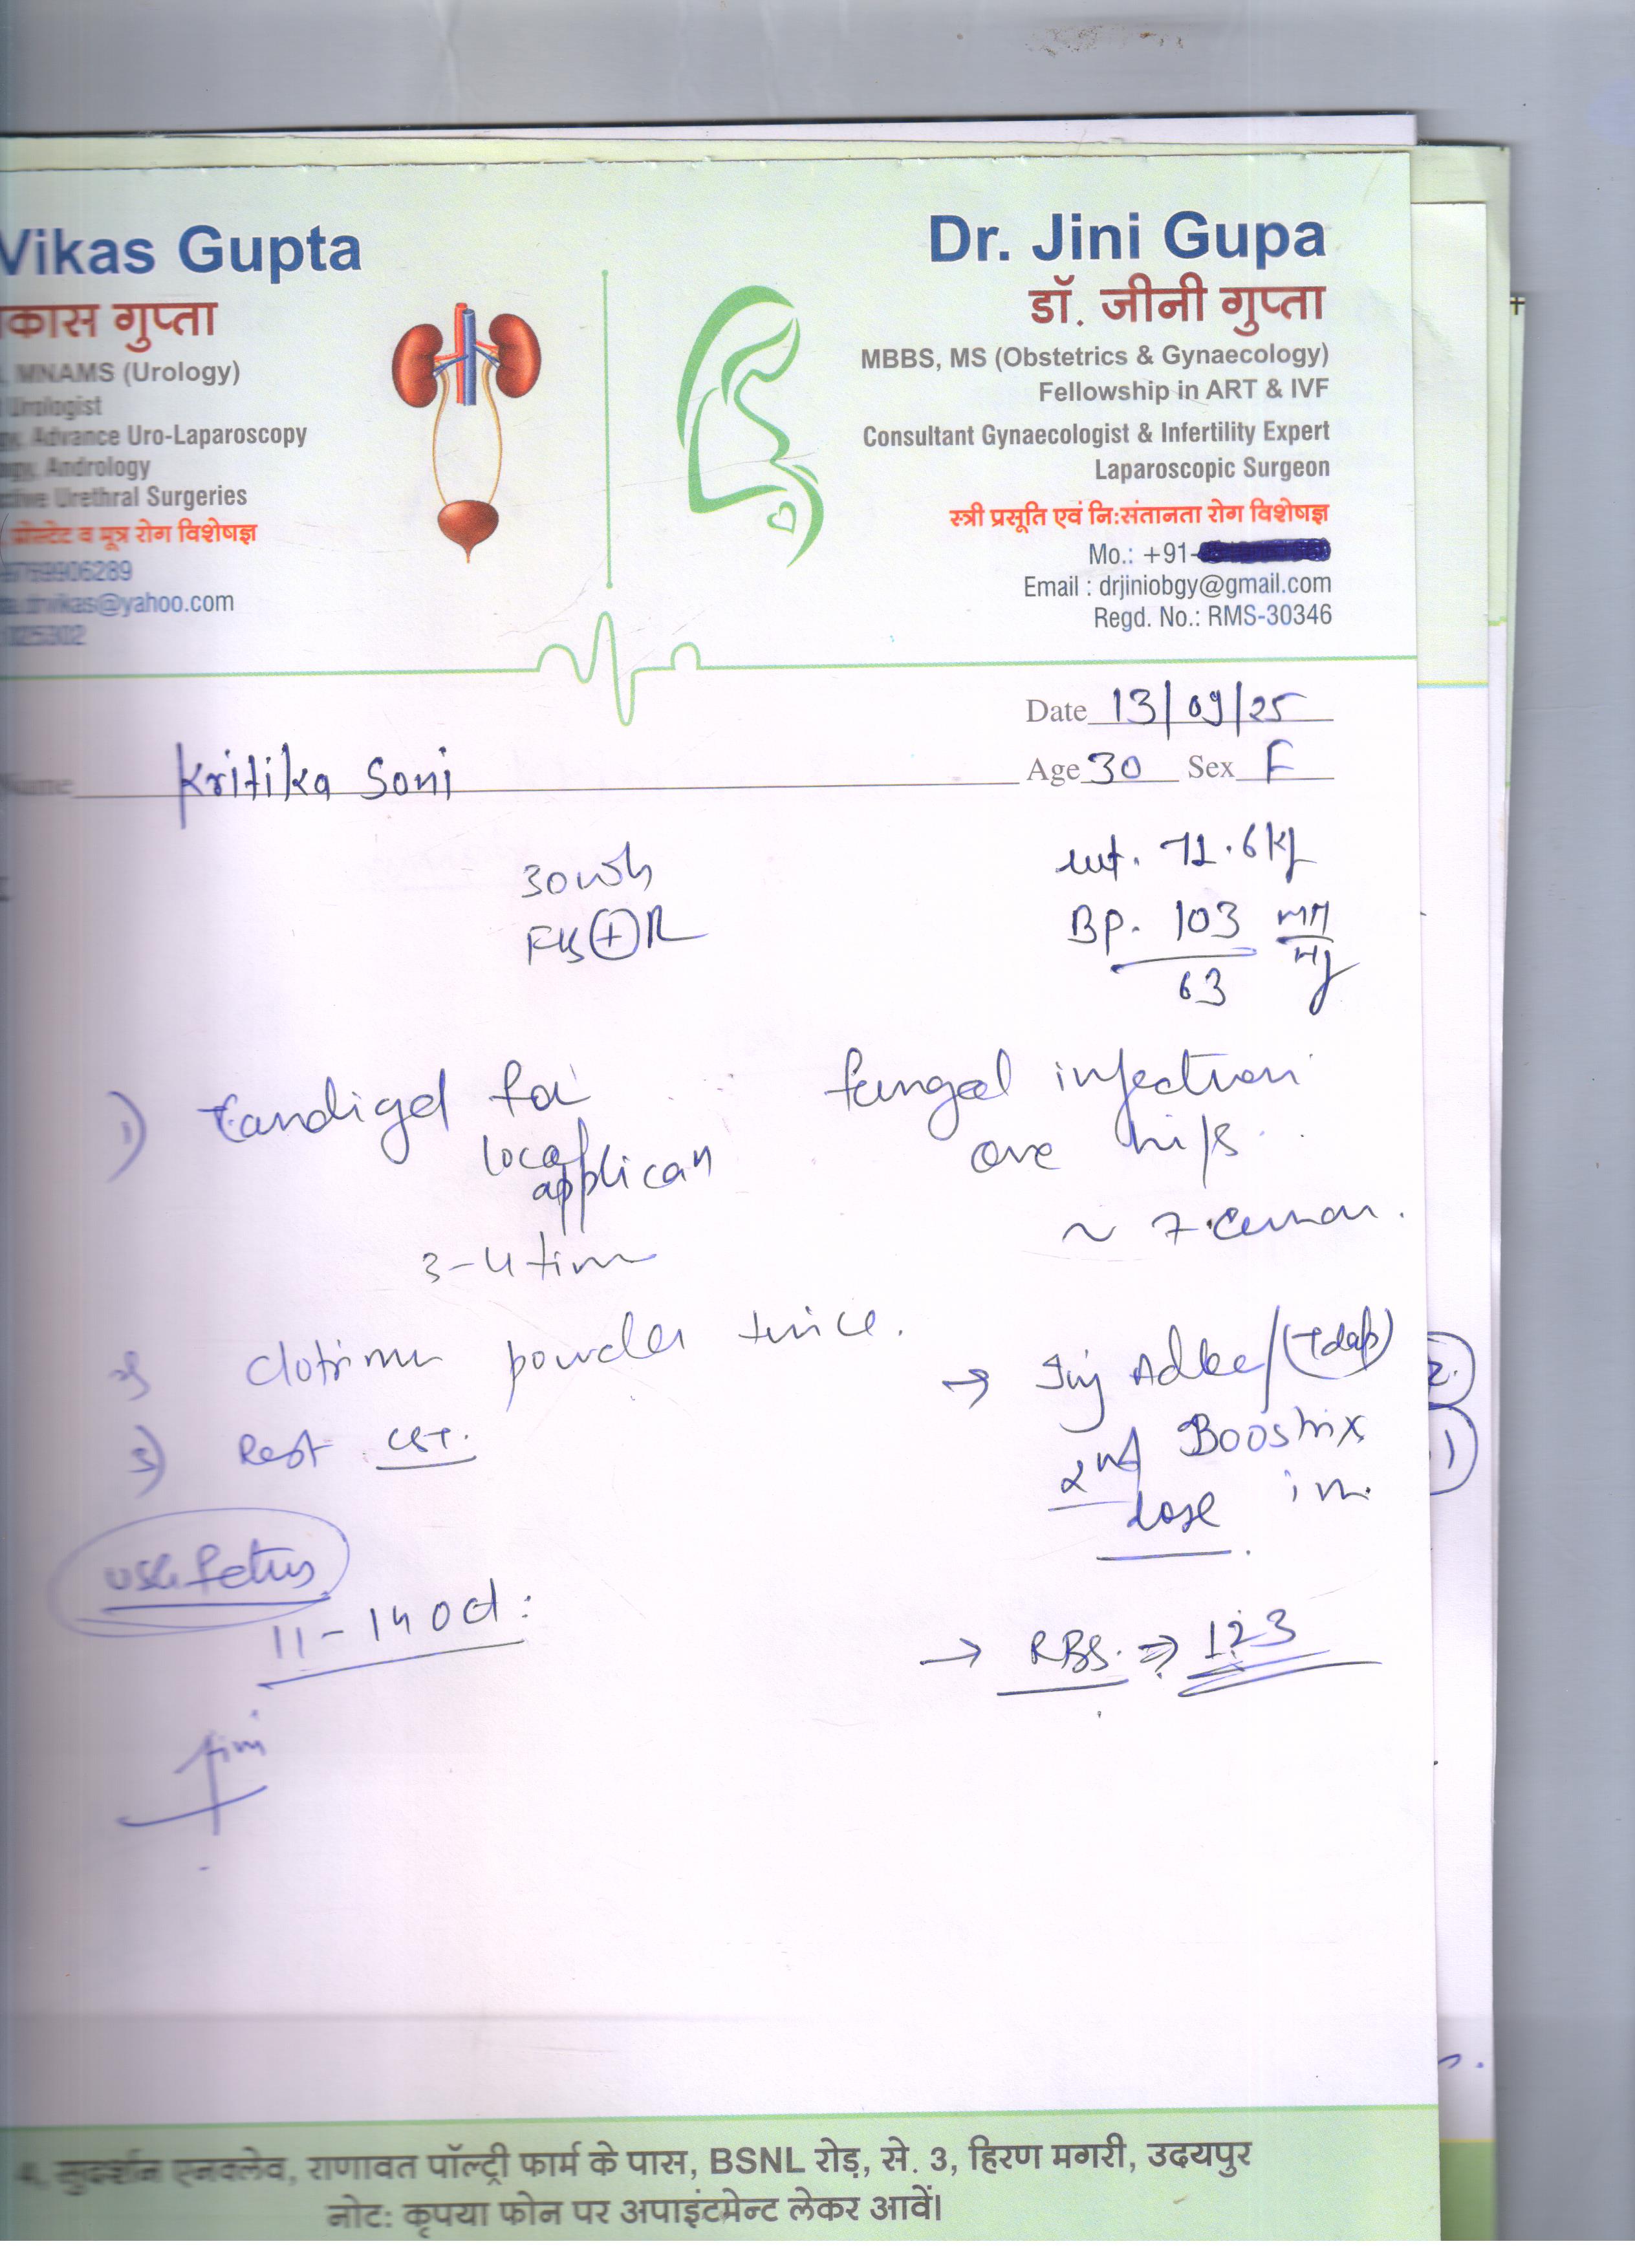 Vikas Gupta
कास गुप्ता
MNAMS (Urology)
Urologist
Advance Uro-Laparoscopy
Andrology
Urethral Surgeries
प्रोस्टेट व मूत्र रोग विशेषज्ञ
9906289
vikas@yahoo.com
Dr. Jini Gupa
डॉ. जीनी गुप्ता
MBBS, MS (Obstetrics & Gynaecology)
Fellowship in ART & IVF
Consultant Gynaecologist & Infertility Expert
Laparoscopic Surgeon
स्त्री प्रसूति एवं नि:संतानता रोग विशेषज्ञ
Mo.: +91-
Email : drjiniobgy@gmail.com
Regd. No.: RMS-30346
Date 13/09/25
Name Kritika Soni
Age 30 Sex F
wt.
BP. 103
63
1) for
local
3-4
fungal infection
powder twice.
→ Inj /(Tdap)
2nd Boostrix
dose im.
3) Rest CST.
USG fetus
11-14 Oct:
→ RBS. ⇒ 123
सुदर्शन एनक्लेव, राणावत पॉल्ट्री फार्म के पास, BSNL रोड़, से. 3, हिरण मगरी, उदयपुर
नोट: कृपया फोन पर अपाइंटमेन्ट लेकर आवें।